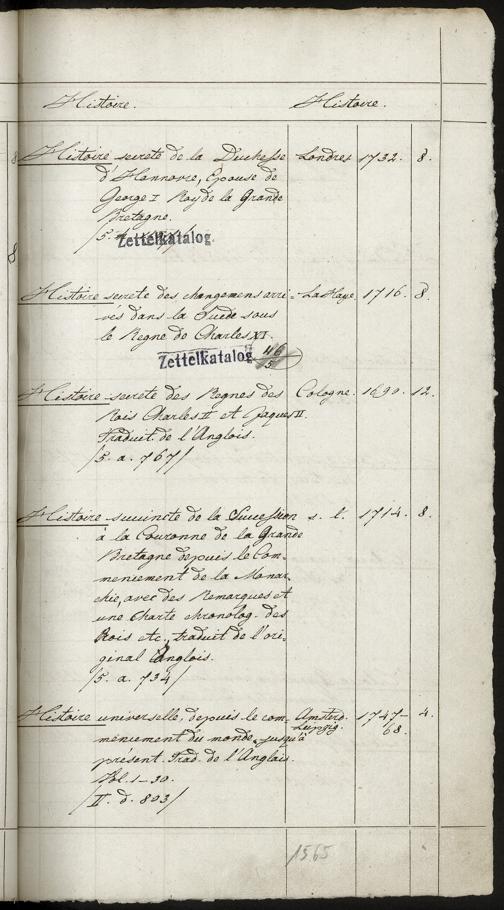 Histoire. Histoire.
Histoire secrete de la Duchesse Londres 1732. 8.
d'Hannovre, Epouse de
George I Roy de la Grande
Bretagne.
/5.
Zettelkatalog.
8
Histoire secrete des changemens arri- La Haye. 1716. 8.
vés dans la Suede sous
le Regne de Charles XI.
Zettelkatalog
Histoire secrete des Regnes des Cologne. 1690. 12.
Rois Charles II et Jaques II.
Traduit de l'Anglois.
/5. a. 767/
Histoire succincte de la Succession s. l. 1714. 8.
à la Couronne de la Grande
Bretagne depuis le Com-
mencement de la Monar-
chie, avec des Remarques et
une Charte chronolog. des
Rois etc, traduit de l'ori-
ginal Anglois.
/5. a. 734/
Histoire universelle, depuis le com- Amsterd. 1747- 4.
mencement du monde jusqu'à Leipzig. 68.
présent. Trad. de l'Anglais.
Vol. 1-30.
/II. d. 803/
1565